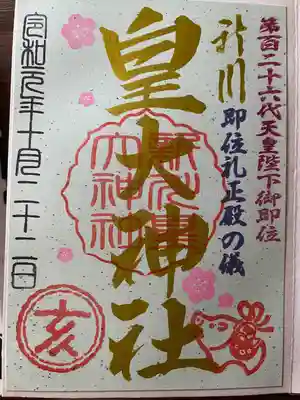 第百二十六代天皇陛下御即位
新川
即位礼正殿の儀
皇大神社
新川皇
大神社
令和元年十月二十二日
亥